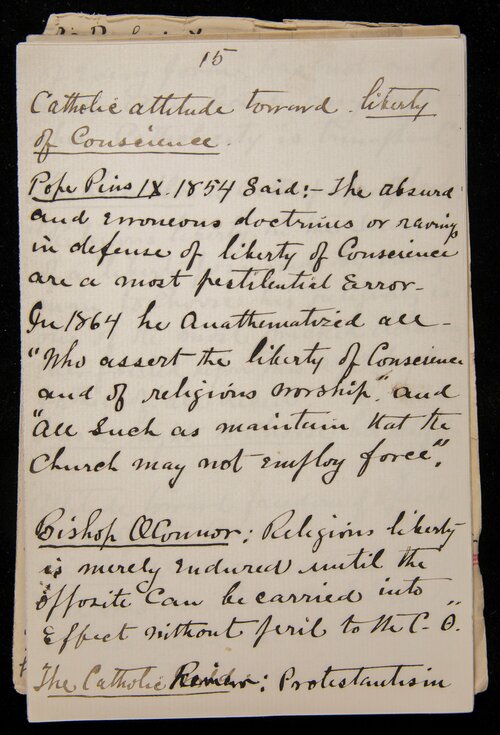 15
Catholic attitude toward liberty
of Conscience.
Pope Pius IX. 1854 Said:- The absurd
and erroneous doctrines or ravings
in defense of liberty of Conscience
are a most pestilential Error-
In 1864 he Anathematized all -
"Who assert the liberty of Conscience
and of religious worship" and
"All Such as maintain that the
Church may not employ force".
Bishop O'Connor: Religious liberty
is merely Endured until the
opposite Can be carried into
Effect without peril to the C- O."
The Catholic Review: Protestantism